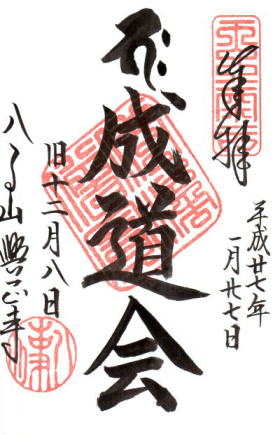 奉拝
平成廿七年
一月廿七日
成道会
旧十二月八日
八事山興正寺